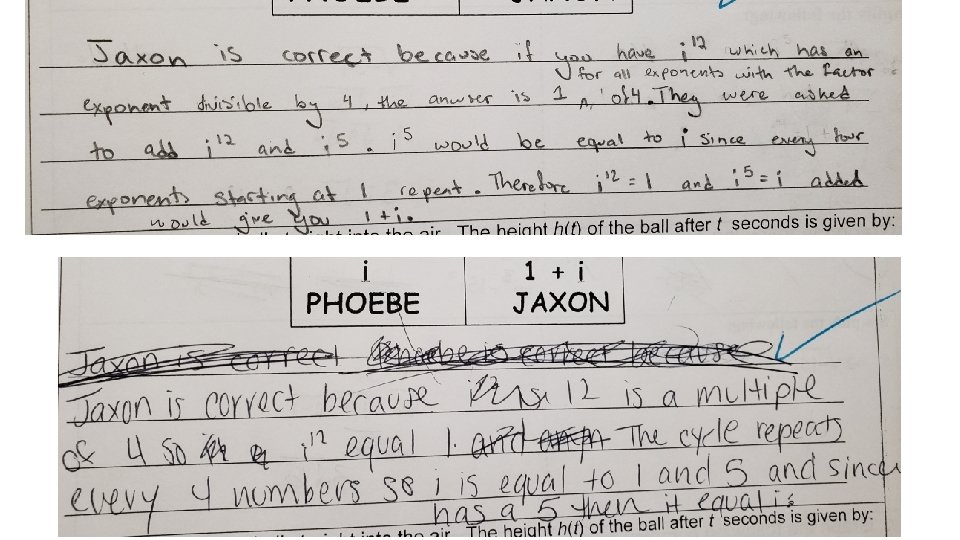 PHOEBE JAXON
Jaxon is correct because if you have i¹² which has an
for all exponents with the factor
exponent divisible by 4, the anwser is 1 of 4. They were asked
to add i¹² and i⁵. i⁵ would be equal to i since every four
exponents starting at 1 repeat. Therefore i¹² = 1 and i⁵ = i added
would give you 1+i.
the air. The height h(t) of the ball after t seconds is given by:
i 1 + i
PHOEBE JAXON
Jaxon is correct Phoebe is correct because
Jaxon is correct because 12 is a multiple
of 4 so i¹² equal 1. and The cycle repeats
every 4 numbers so i is equal to 1 and 5 and since
has a 5 then it equal is
the air. The height h(t) of the ball after t seconds is given by: